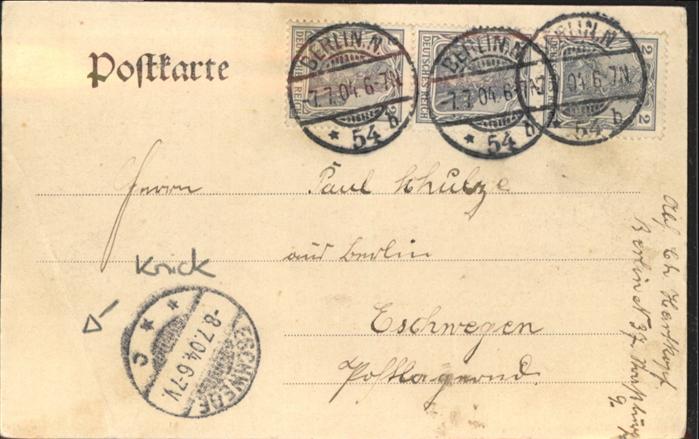 Postkarte
DEUTSCHES REICH
2
DEUTSCHES REICH
2
2
2
BERLIN.N.
-7.7.04.6-7N
* 54 b
BERLIN.N.
-7.7.04.6-7N
* 54 b
BERLIN.N.
04.6-7N
54 b
Herrn Paul Schulze
aus Berlin
Eschwegen
Postlagernd.
Knick
ESCHWEGE
-8.7.04.6-7V.
Abs. Hartkopf
Berlin N 37
9.